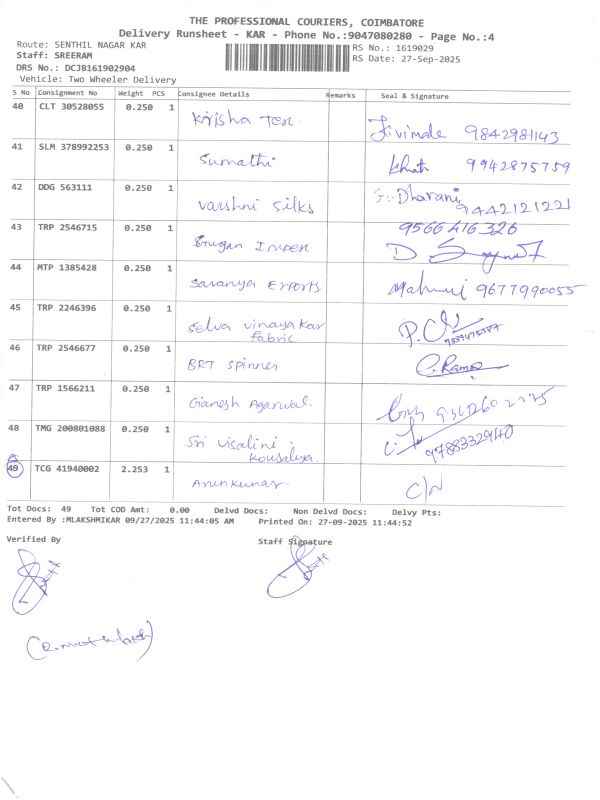 THE PROFESSIONAL COURIERS, COIMBATORE
Delivery Runsheet - KAR - Phone No.:9047080280 - Page No.:4
Route: SENTHIL NAGAR KAR
RS No.: 1619029
Staff: SREERAM
RS Date: 27-Sep-2025
DRS No.: DCJB161902904
Vehicle: Two Wheeler Delivery
S No Consignment No Weight PCS Consignee Details Remarks Seal & Signature
40 CLT 30528055 0.250 1 Krisha Tex. 9842981143
41 SLM 378992253 0.250 1 Sumathi 9942875759
42 DDG 563111 0.250 1 Varshni Silks Dharani 9442121221
43 TRP 2546715 0.250 1 9566416326
44 MTP 1385428 0.250 1 Saranya Exports 9677990055
45 TRP 2246396 0.250 1 Selva vinayakar
fabric.
46 TRP 2546677 0.250 1 BRT Spinner C. Rama
47 TRP 1566211 0.250 1 Ganesh Agarwal.
48 TMG 200801088 0.250 1 Sri Visalini
Kousalya. 9788332940
49 TCG 41940002 2.253 1 Arunkumar.
Tot Docs: 49 Tot COD Amt: 0.00 Delvd Docs: Non Delvd Docs: Delvy Pts:
Entered By :MLAKSHMIKAR 09/27/2025 11:44:05 AM Printed On: 27-09-2025 11:44:52
Verified By
Staff Signature